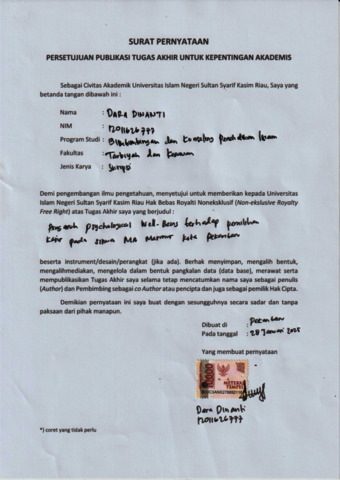 SURAT PERNYATAAN
PERSETUJUAN PUBLIKASI TUGAS AKHIR UNTUK KEPENTINGAN AKADEMIS
Sebagai Civitas Akademik Universitas Islam Negeri Sultan Syarif Kasim Riau, Saya yang
betanda tangan dibawah ini :
Nama : DARA DINANTI
NIM : 12011626777
Program Studi : Bimbingan dan Konseling pendidikan Islam
Fakultas : Tarbiyah dan Keguruan
Jenis Karya : Skripsi
Demi pengembangan ilmu pengetahuan, menyetujui untuk memberikan kepada Universitas
Islam Negeri Sultan Syarif Kasim Riau Hak Bebas Royalti Noneksklusif (Non-ekslusive Royalty
Free Right) atas Tugas Akhir saya yang berjudul :
Pengaruh Psychological Well-Being terhadap pemilihan
Karir pada siswa MA Masmur Kota Pekanbaru
beserta instrument/desain/perangkat (jika ada). Berhak menyimpan, mengalih bentuk,
mengalihmediakan, mengelola dalam bentuk pangkalan data (data base), merawat serta
mempublikasikan Tugas Akhir saya selama tetap mencatumkan nama saya sebagai penulis
(Author) dan Pembimbing sebagai co Author atau pencipta dan juga sebagai pemilik Hak Cipta.
Demikian pernyataan ini saya buat dengan sesungguhnya secara sadar dan tanpa
paksaan dari pihak manapun.
Dibuat di : Pekanbaru
Pada tanggal : 28 Januari 2025
Yang membuat pernyataan
10000
METERAI
TEMPEL
Dara Dinanti
12011626777
*) coret yang tidak perlu